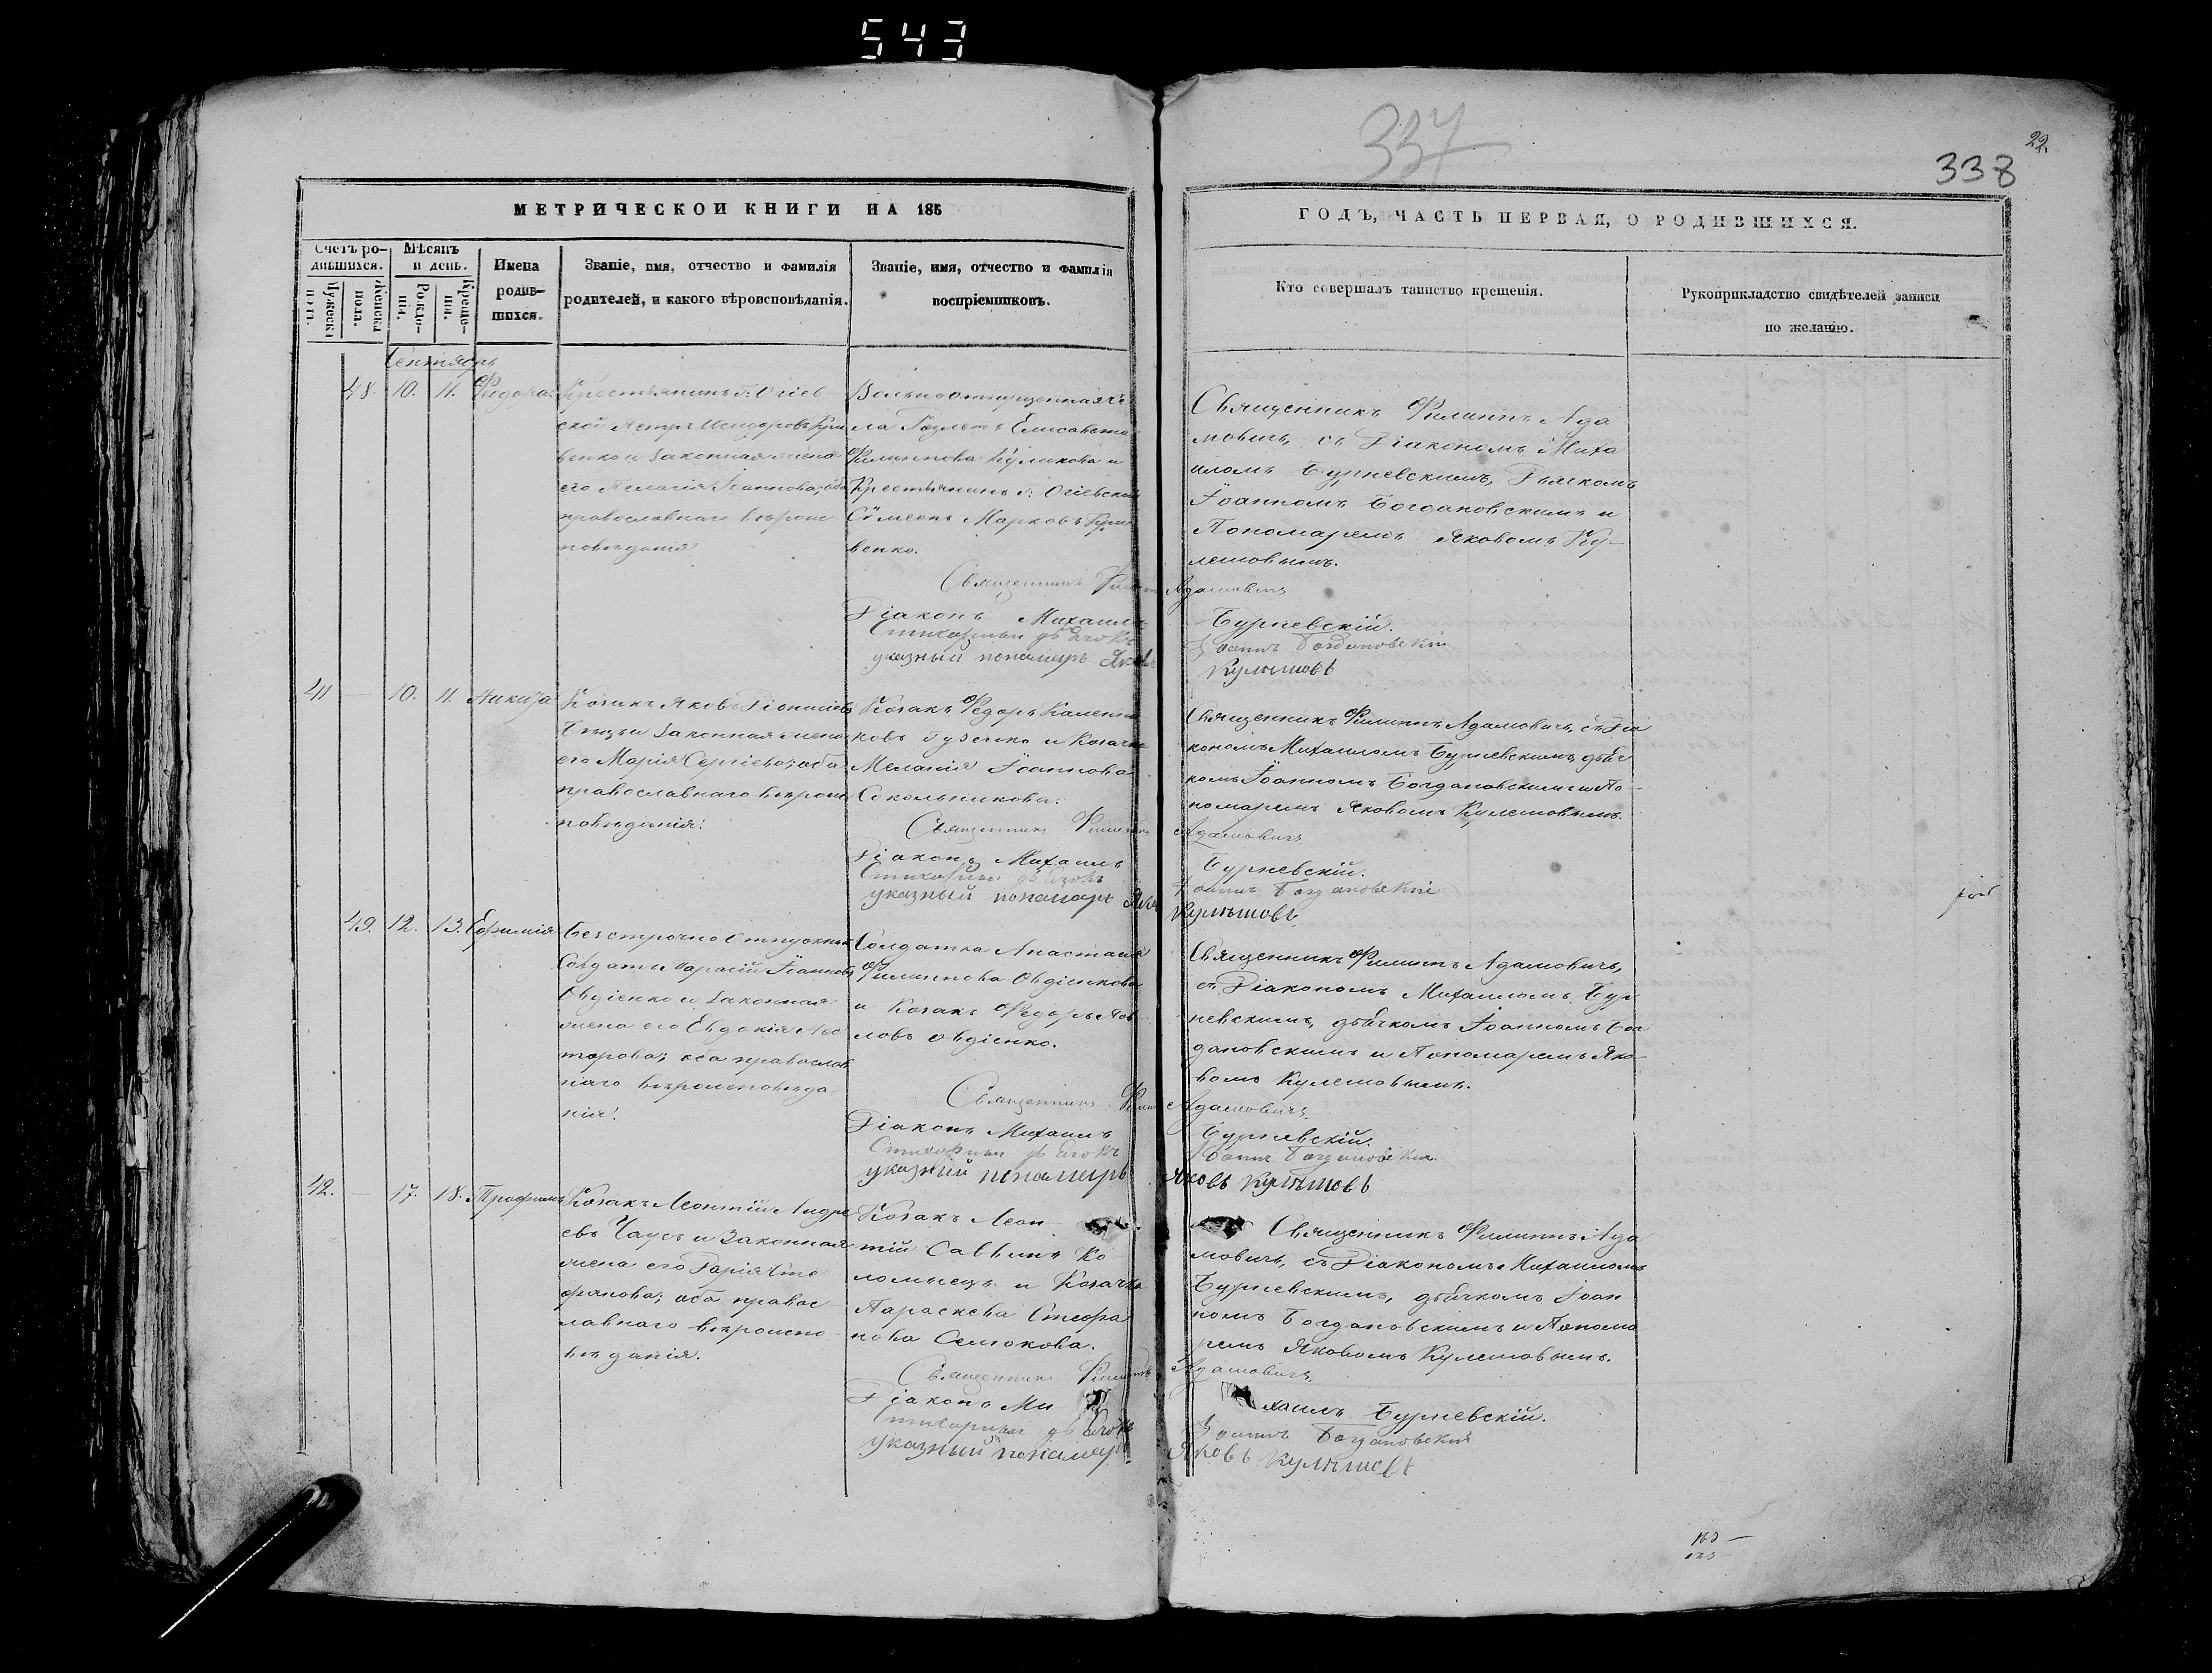 543
337
338
22.
МЕТРИЧЕСКОЙ КНИГИ НА 185
ГОДЪ, ЧАСТЬ ПЕРВАЯ, О РОДИВШИХСЯ.
Счетъ ро-
дившихся.
Мужеска
пола.
Женска
пола.
Мѣсяцъ
и день.
Рожде-
нія.
Креще-
нія.
Имена
родив-
шихся.
Званіе, имя, отчество и фамилія
родителей, и какого вѣроисповѣданія.
Званіе, имя, отчество и фамилія
воспріемниковъ.
Кто совершалъ таинство крещенія.
Рукоприкладство свидѣтелей записи
по желанію.
Сентябрь
48. 10. 11. Федора
Крестьянинъ г: Огіев
ской Петръ
и законная жена
его Пелагія Іоаннова; оба
православнаго вѣроис
повѣданія
Вольноотпущенная
Елисавета
Филиппова Куликова и
Крестьянинъ г: Огіевской
Сѵмеонъ Марковъ
венко.
Священникъ Филиппъ Ада
мовичь, съ Діакономъ Миха
иломъ Бурневскимъ, Дьячкомъ
Іоанномъ Богдановскимъ и
Пономаремъ Яковомъ Ку-
лешовымъ.
Священникъ Филиппъ Адамовичъ
Діаконъ Михаилъ Бурневскій.
Стихарный дьячокъ Іоаннъ Богдановскій
указный пономарь Яковъ Кулѣшовъ
41 — 10. 11. Никита
Козакъ Яковъ Діонисіевъ
и законная жена
его Марія Сергіева; оба
православнаго вѣроис
повѣданія.
Козакъ Федоръ Калинни
ковъ Гузенко и Козачка
Меланія Іоаннова
Сокольникова.
Священникъ Филиппъ Адамовичь, съ Діа
кономъ Михаиломъ Бурневскимъ, дьяч
комъ Іоанномъ Богдановскимъ и По-
номаремъ Яковомъ Кулешовымъ.
Священникъ Филиппъ Адамовичъ
Діаконъ Михаилъ Бурневскій.
Стихарный дьячокъ Іоаннъ Богдановскій
указный пономарь Яковъ Кулѣшовъ
49. 12. 13. Евфимія
Безсрочно Отпускный
Солдатъ Іоанновъ
Овдіенко и законная
жена его Евдокія Нес
торова; оба православ
наго вѣроисповѣда
нія.
Солдатка Анастасія
Филиппова Овдіенкова
и Козакъ Федоръ Пав
ловъ Овдіенко.
Священникъ Филиппъ Адамовичь,
съ Діакономъ Михаиломъ Бур
невскимъ, дьячкомъ Іоанномъ Бог
дановскимъ и Пономаремъ Яко-
вомъ Кулешовымъ.
Священникъ Филиппъ Адамовичъ
Діаконъ Михаилъ Бурневскій.
Стихарный дьячокъ Іоаннъ Богдановскій
указный пономарь Яковъ Кулѣшовъ
42. — 17. 18. Трофимъ
Козакъ Леонтій Андре
евъ Чаусъ и законная
жена его Дарія Сте
фанова; оба правос
лавнаго вѣроиспо
вѣданія.
Козакъ Леон
тій Саввинъ Ко
ломыецъ и Козачка
Параскева Стефа
нова Селюкова.
Священникъ Филиппъ Ада
мовичь, съ Діакономъ Михаиломъ
Бурневскимъ, дьячкомъ Іоан
номъ Богдановскимъ и Понома
ремъ Яковомъ Кулешовымъ.
Священникъ Филиппъ Адамовичъ
Діаконъ Михаилъ Бурневскій.
Стихарный дьячокъ Іоаннъ Богдановскій
указный пономарь Яковъ Кулѣшовъ